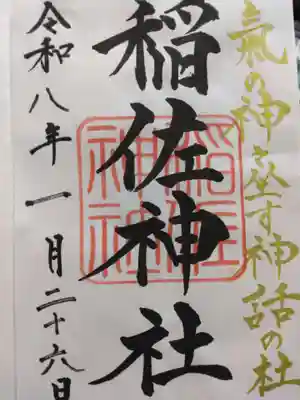 氣の神さ座す神話の杜
稲佐神社
稲佐神社
令和八年一月二十六日